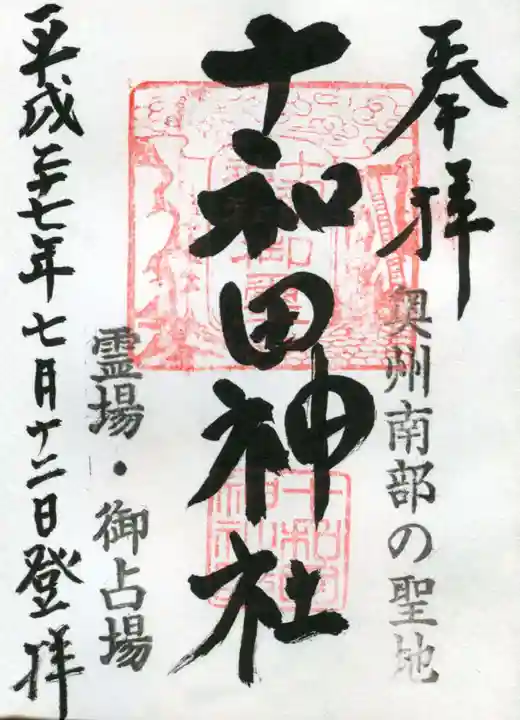 奉拝
奥州南部の聖地
十和田神社
十和田神社
霊場・御占場
平成二十七年七月十二日登拝